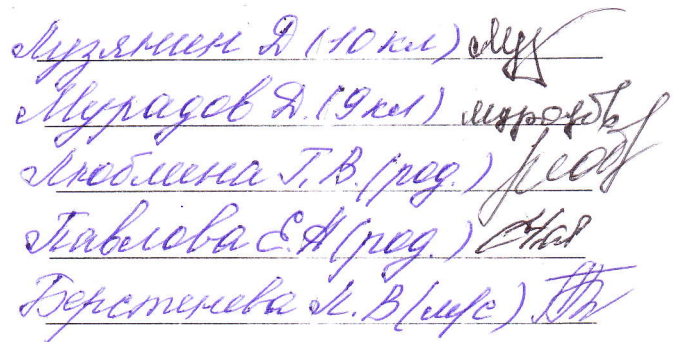 Лузянин Д (10 кл)
Мурадов Д. (9 кл)
Люблина Г. В. (род.)
Павлова Е. Н (род.)
Берстенева Л. В (м/с)